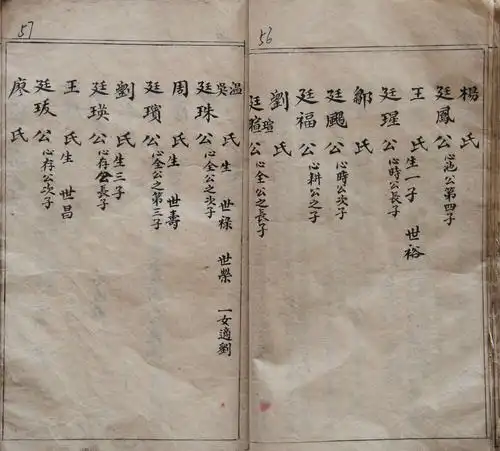 56
楊氏
廷鳳公 心池公第四子
王氏 生一子 世裕
廷瑆公 心時公長子
鄒氏
廷颺公 心時公次子
廷福公 心耕公之子
劉氏
廷暄公 心全公之長子
瑄
57
溫吳氏 生 世祿 世榮 一女適劉
廷珠公 心全公之次子
周氏 生 世壽
廷璸公 心全公之第三子
劉氏 生三子
廷瑛公 心存公長子
王氏 生 世昌
廷珼公 心存公次子
廖氏